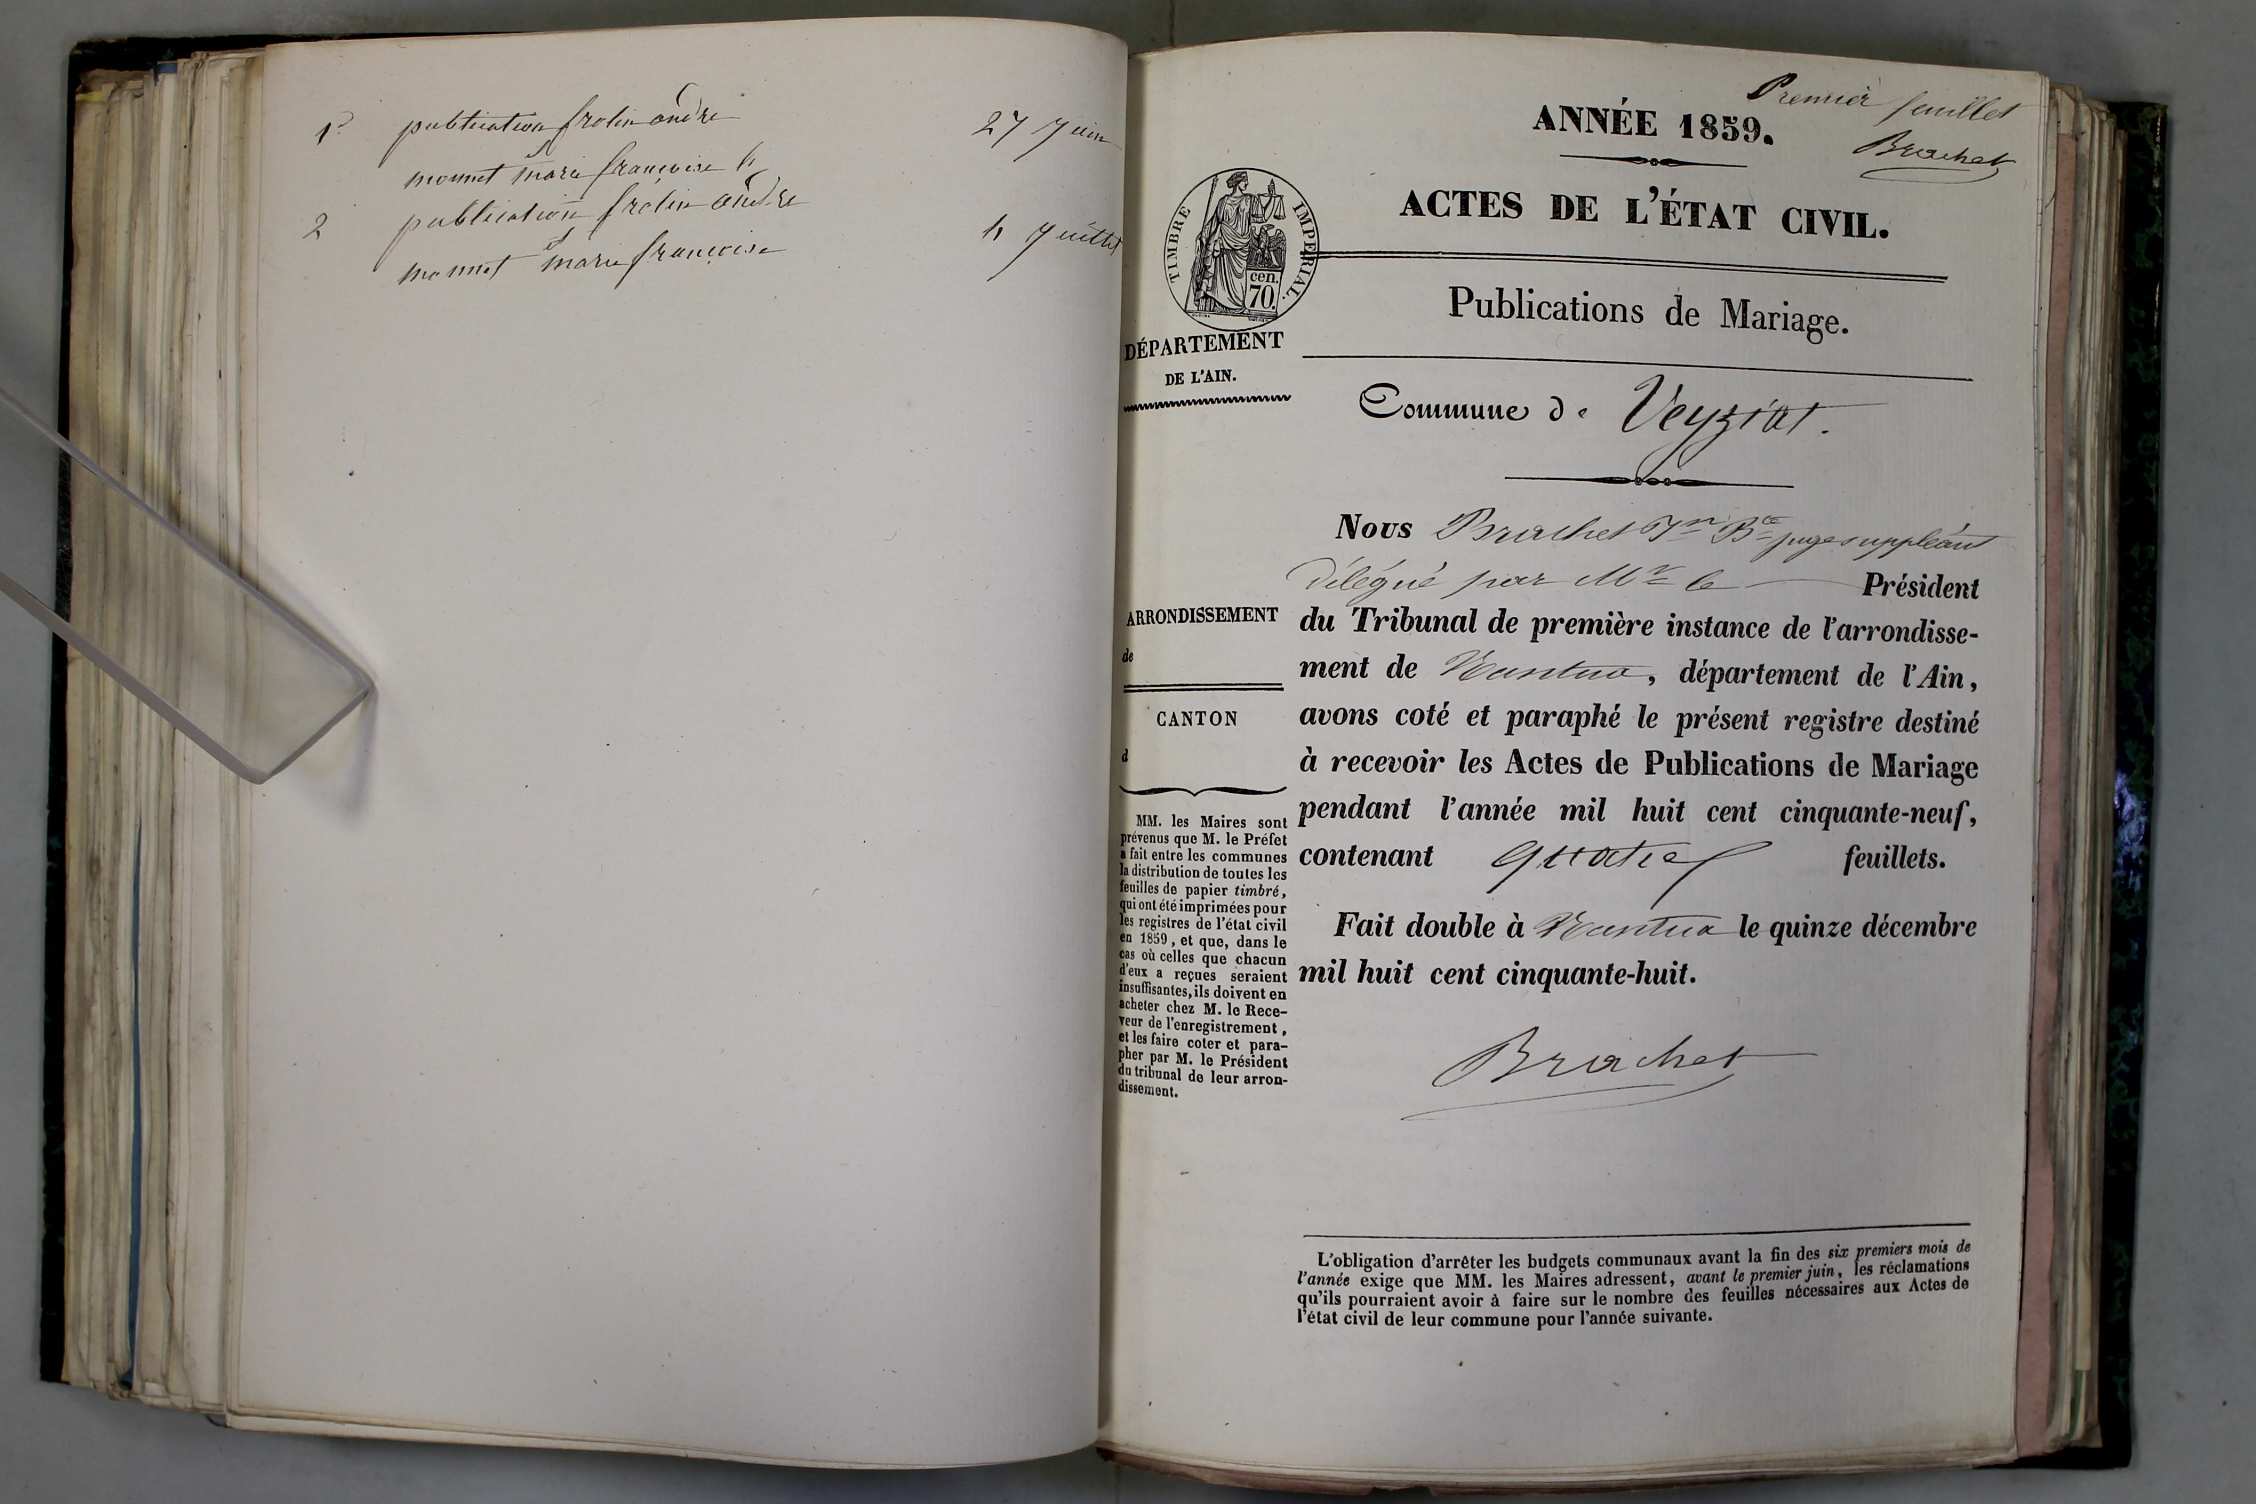 1º publication frolin andré 27 Juin
et
monnet marie françoise
2 publication frolin andré 4 Juillet
et
monnet marie françoise
Premier feuillet
Brachet
ANNÉE 1859.
ACTES DE L'ÉTAT CIVIL.
TIMBRE IMPERIAL.
cen.
70.
Publications de Mariage.
DÉPARTEMENT
DE L'AIN.
Commune de Veyziat.
Nous Brachet Jn Bte juge suppléant
délégué par Mr le Président
du Tribunal de première instance de l'arrondisse-
ment de Nantua, département de l'Ain,
avons coté et paraphé le présent registre destiné
à recevoir les Actes de Publications de Mariage
pendant l'année mil huit cent cinquante-neuf,
contenant quatre feuillets.
Fait double à Nantua le quinze décembre
mil huit cent cinquante-huit.
Brachet
ARRONDISSEMENT
de
CANTON
d
MM. les Maires sont
prévenus que M. le Préfet
a fait entre les communes
la distribution de toutes les
feuilles de papier timbré,
qui ont été imprimées pour
les registres de l'état civil
en 1859, et que, dans le
cas où celles que chacun
d'eux a reçues seraient
insuffisantes, ils doivent en
acheter chez M. le Rece-
veur de l'enregistrement,
et les faire coter et para-
pher par M. le Président
du tribunal de leur arron-
dissement.
L'obligation d'arrêter les budgets communaux avant la fin des six premiers mois de
l'année exige que MM. les Maires adressent, avant le premier juin, les réclamations
qu'ils pourraient avoir à faire sur le nombre des feuilles nécessaires aux Actes de
l'état civil de leur commune pour l'année suivante.